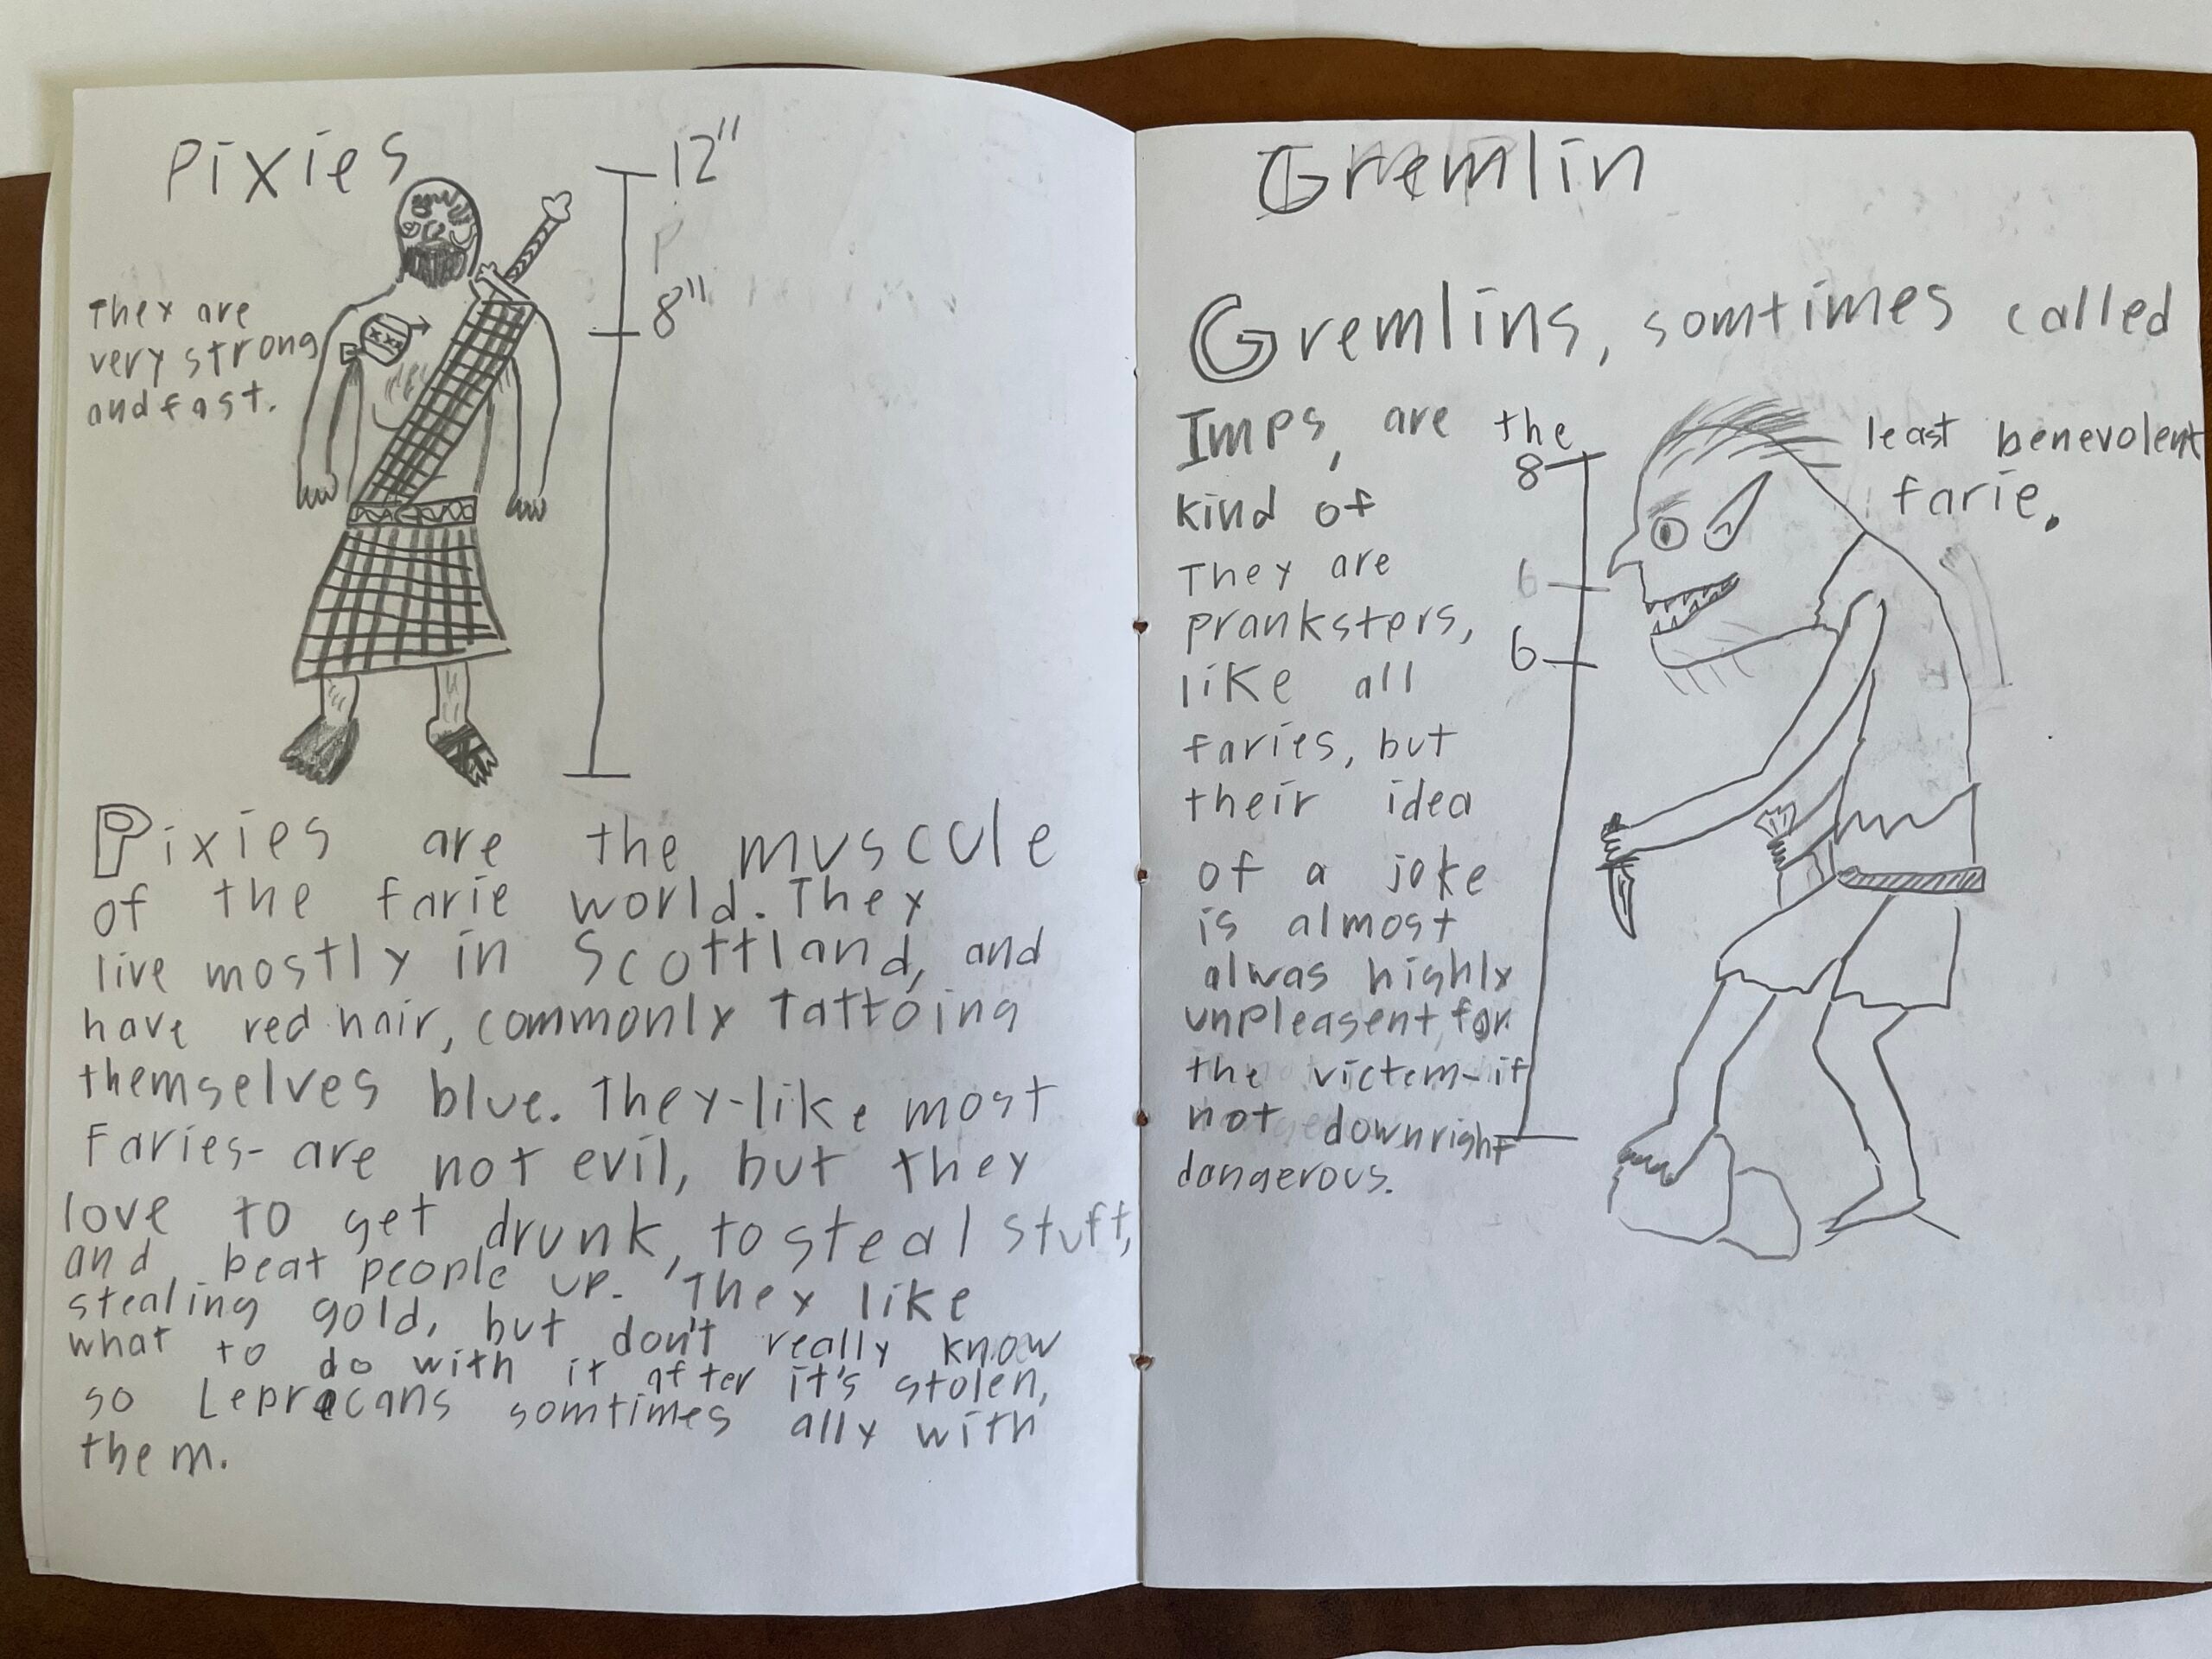 Pixies
12"
P
8"
They are
very strong
and fast.
Pixies are the muscule
of the farie world. They
live mostly in Scottland, and
have red hair, commonly tattoing
themselves blue. They-like most
Faries- are not evil, but they
love to get drunk, to steal stuff,
and beat people up. They like
stealing gold, but don't really know
what to do with it after it's stolen,
so Lepracans somtimes ally with
them.
Gremlin
Gremlins, somtimes called
Imps, are the least benevolent
kind of farie.
They are
pranksters,
like all
faries, but
their idea
of a joke
is almost
alwas highly
unpleasent, for
the victem-if
not downright
dangerous.
8
6
6